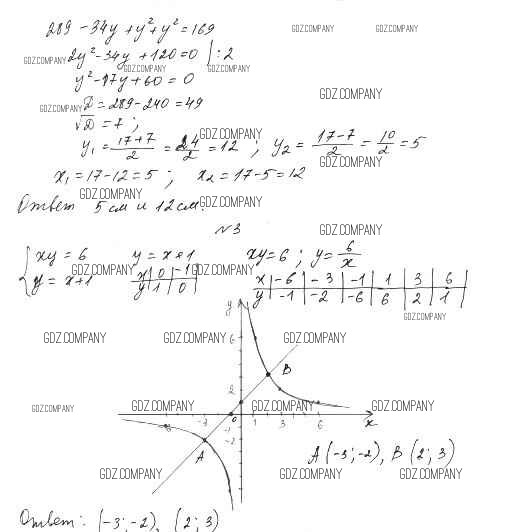 289 - 34y + y² + y² = 169
GDZ.COMPANY GDZ.COMPANY
2y² - 34y + 120 = 0 | : 2
GDZ.COMPANY GDZ.COMPANY GDZ.COMPANY
y² - 17y + 60 = 0
GDZ.COMPANY
D = 289 - 240 = 49
GDZ.COMPANY
√D = 7 ;
GDZ.COMPANY
y₁ = (17+7)/2 = 24/2 = 12 ; y₂ = (17-7)/2 = 10/2 = 5
GDZ.COMPANY
x₁ = 17 - 12 = 5 ; x₂ = 17 - 5 = 12
GDZ.COMPANY
Ответ 5 см и 12 см.
GDZ.COMPANY
№3
GDZ.COMPANY
{ xy = 6 y = x + 1 xy = 6 ; y = 6/x
GDZ.COMPANY GDZ.COMPANY
y = x + 1 x | 0 | -1 | x | -6 | -3 | -1 | 1 | 3 | 6 |
y | 1 | 0 | y | -1 | -2 | -6 | 6 | 2 | 1 |
y
GDZ.COMPANY
6
GDZ.COMPANY GDZ.COMPANY GDZ.COMPANY
B
2
GDZ.COMPANY GDZ.COMPANY GDZ.COMPANY GDZ.COMPANY
-3 -1 0 1 3 6 x
-1
-2
A
A (-3; -2), B (2; 3)
GDZ.COMPANY GDZ.COMPANY GDZ.COMPANY
Ответ: (-3; -2), (2; 3)